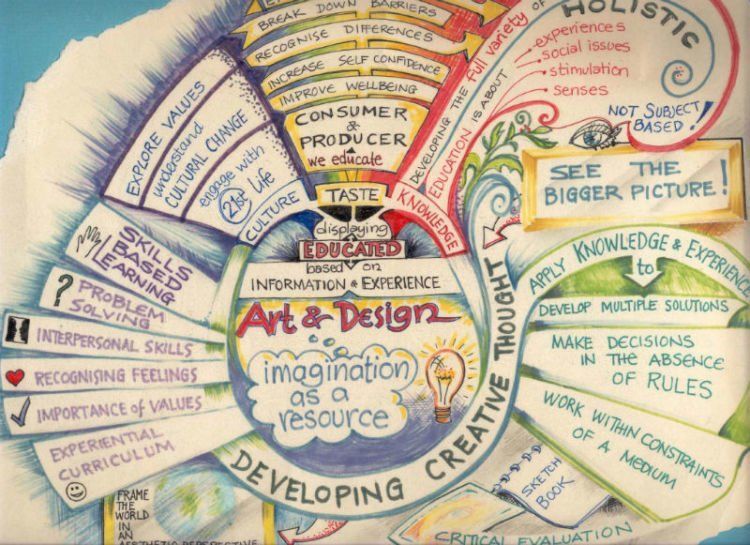 BREAK DOWN BARRIERS
RECOGNISE DIFFERENCES
INCREASE SELF CONFIDENCE
IMPROVE WELLBEING
CONSUMER
&
PRODUCER
we educate
TASTE
EXPLORE VALUES
understand
CULTURAL CHANGE
engage with
21st Life
CULTURE
KNOWLEDGE
EDUCATION IS ABOUT
experiences
social issues
stimulation
senses
DEVELOPING THE full variety of
HOLISTIC
NOT SUBJECT
BASED!
SEE THE
BIGGER PICTURE!
displaying
EDUCATED
based on
INFORMATION & EXPERIENCE
Art & Design
imagination
as a
resource
DEVELOPING CREATIVE THOUGHT
SKILLS
BASED
LEARNING
? PROBLEM
SOLVING
INTERPERSONAL SKILLS
RECOGNISING FEELINGS
IMPORTANCE of VALUES
EXPERIENTIAL
CURRICULUM
APPLY KNOWLEDGE & EXPERIENCE
to
DEVELOP MULTIPLE SOLUTIONS
MAKE DECISIONS
IN THE ABSENCE
OF RULES
WORK WITHIN CONSTRAINTS
OF A MEDIUM
SKETCH
BOOK
CRITICAL EVALUATION
FRAME
THE
WORLD
IN
AN
AESTHETIC PERSPECTIVE